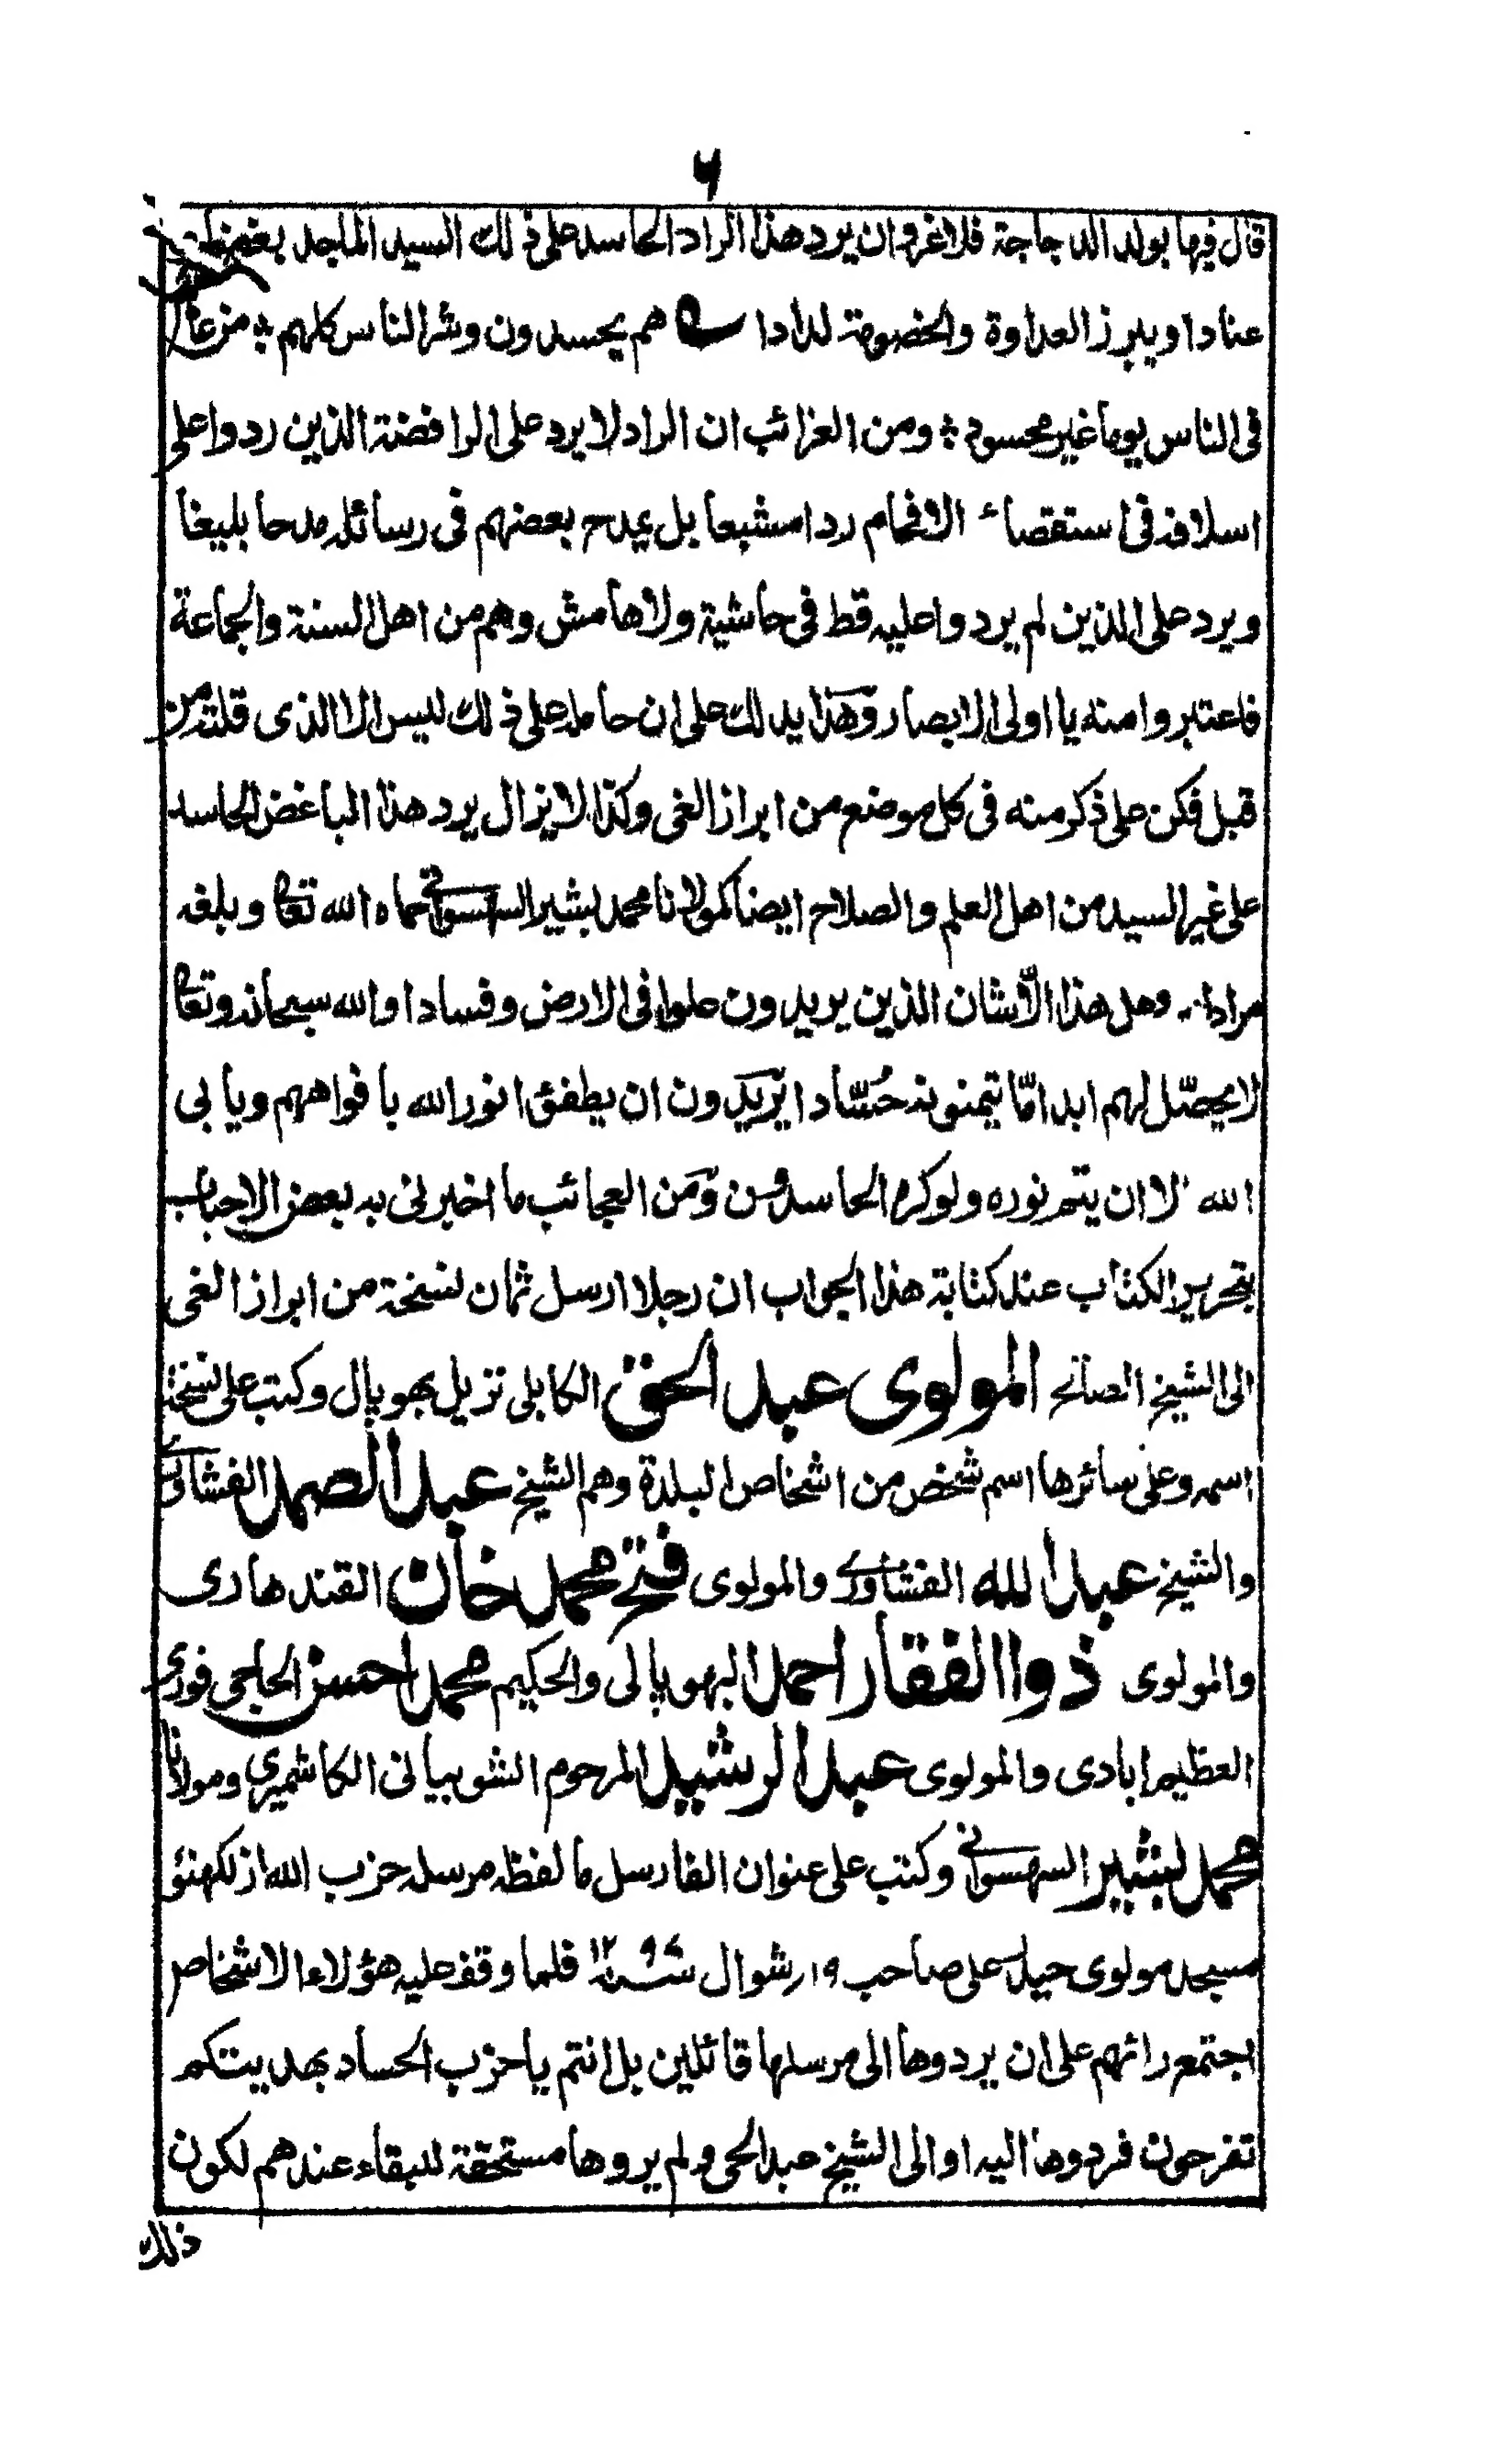 ۶
قال فيها بولد الدجاجة فلا غرو ان يرد هذا الراد الحاسد على ذلك السيد الماجد
عنادا ويبرز العداوة والخصومة لدادا هم يحسدون وشر الناس كلهم ؞ من عاش
فى الناس يوما غير محسود ؞ ومن الغرائب ان الراد لا يرد على الرافضة الذين ردوا على
اسلافه فى استقصاء الافحام ردا مشبعا بل يمدح بعضهم فى رسائله مدحا بليغا
ويرد على الذين لم يردوا عليه قط فى حاشية ولا هامش وهم من اهل السنة والجماعة
فاعتبروا منه يا اولى الابصار وهذا يدلك على ان حامله على ذلك ليس الا الذى قلته من
قبل فكن على ذكر منه فى كل موضع من ابراز الغى وكذا لا يزال يرد هذا الباغض الحاسد
على غير السيد من اهل العلم والصلاح ايضا كمولانا محمد بشير السهسوانى حماه الله تعالى وبلغه
مرادا وهل هذا الا شان الذين يريدون علوا فى الارض وفسادا والله سبحانه وتعالى
لا يحصّل لهم ابدا مّا يتمنونه حُسّادا يريدون ان يطفئوا نور الله بافواههم ويابى
الله الا ان يتم نوره ولو كره الحاسدون ومن العجائب ما اخبرنى به بعض الاحباب
بتحرير الكتاب عند كتابة هذا الجواب ان رجلا ارسل ثمان نسخة من ابراز الغى
الى الشيخ الصالح المولوى عبد الحق الكابلى نزيل بهوپال وكتب على نسخة
اسمه وعلى سائرها اسم شخص من اشخاص البلدة وهم الشيخ عبد الصمد الفشاورى
والشيخ عبد الله الفشاورى والمولوى فتح محمد خان القندهارى
والمولوى ذوالفقار احمد البهوپالى والحكيم محمد احسن الحاجى فورى
العظيم ابادى والمولوى عبد الرشيد المرحوم الشوبيانى الكاشميرى ومولانا
محمد بشير السهسوانى وكتب على عنوان الفارسل ما لفظه مرسله حزب الله از لكهنؤ
مسجد مولوى حيدر على صاحب ۱۹ر شوال سنه ۱۲۹۷ فلما وقف عليه هؤلاء الاشخاص
اجتمع رائهم على ان يردوها الى مرسلها قائلين بل انتم يا حزب الحساد بهديتكم
تفرحون فردوها اليه او الى الشيخ عبد الحى ولم يروها مستحقة للبقاء عندهم لكون
ذلك